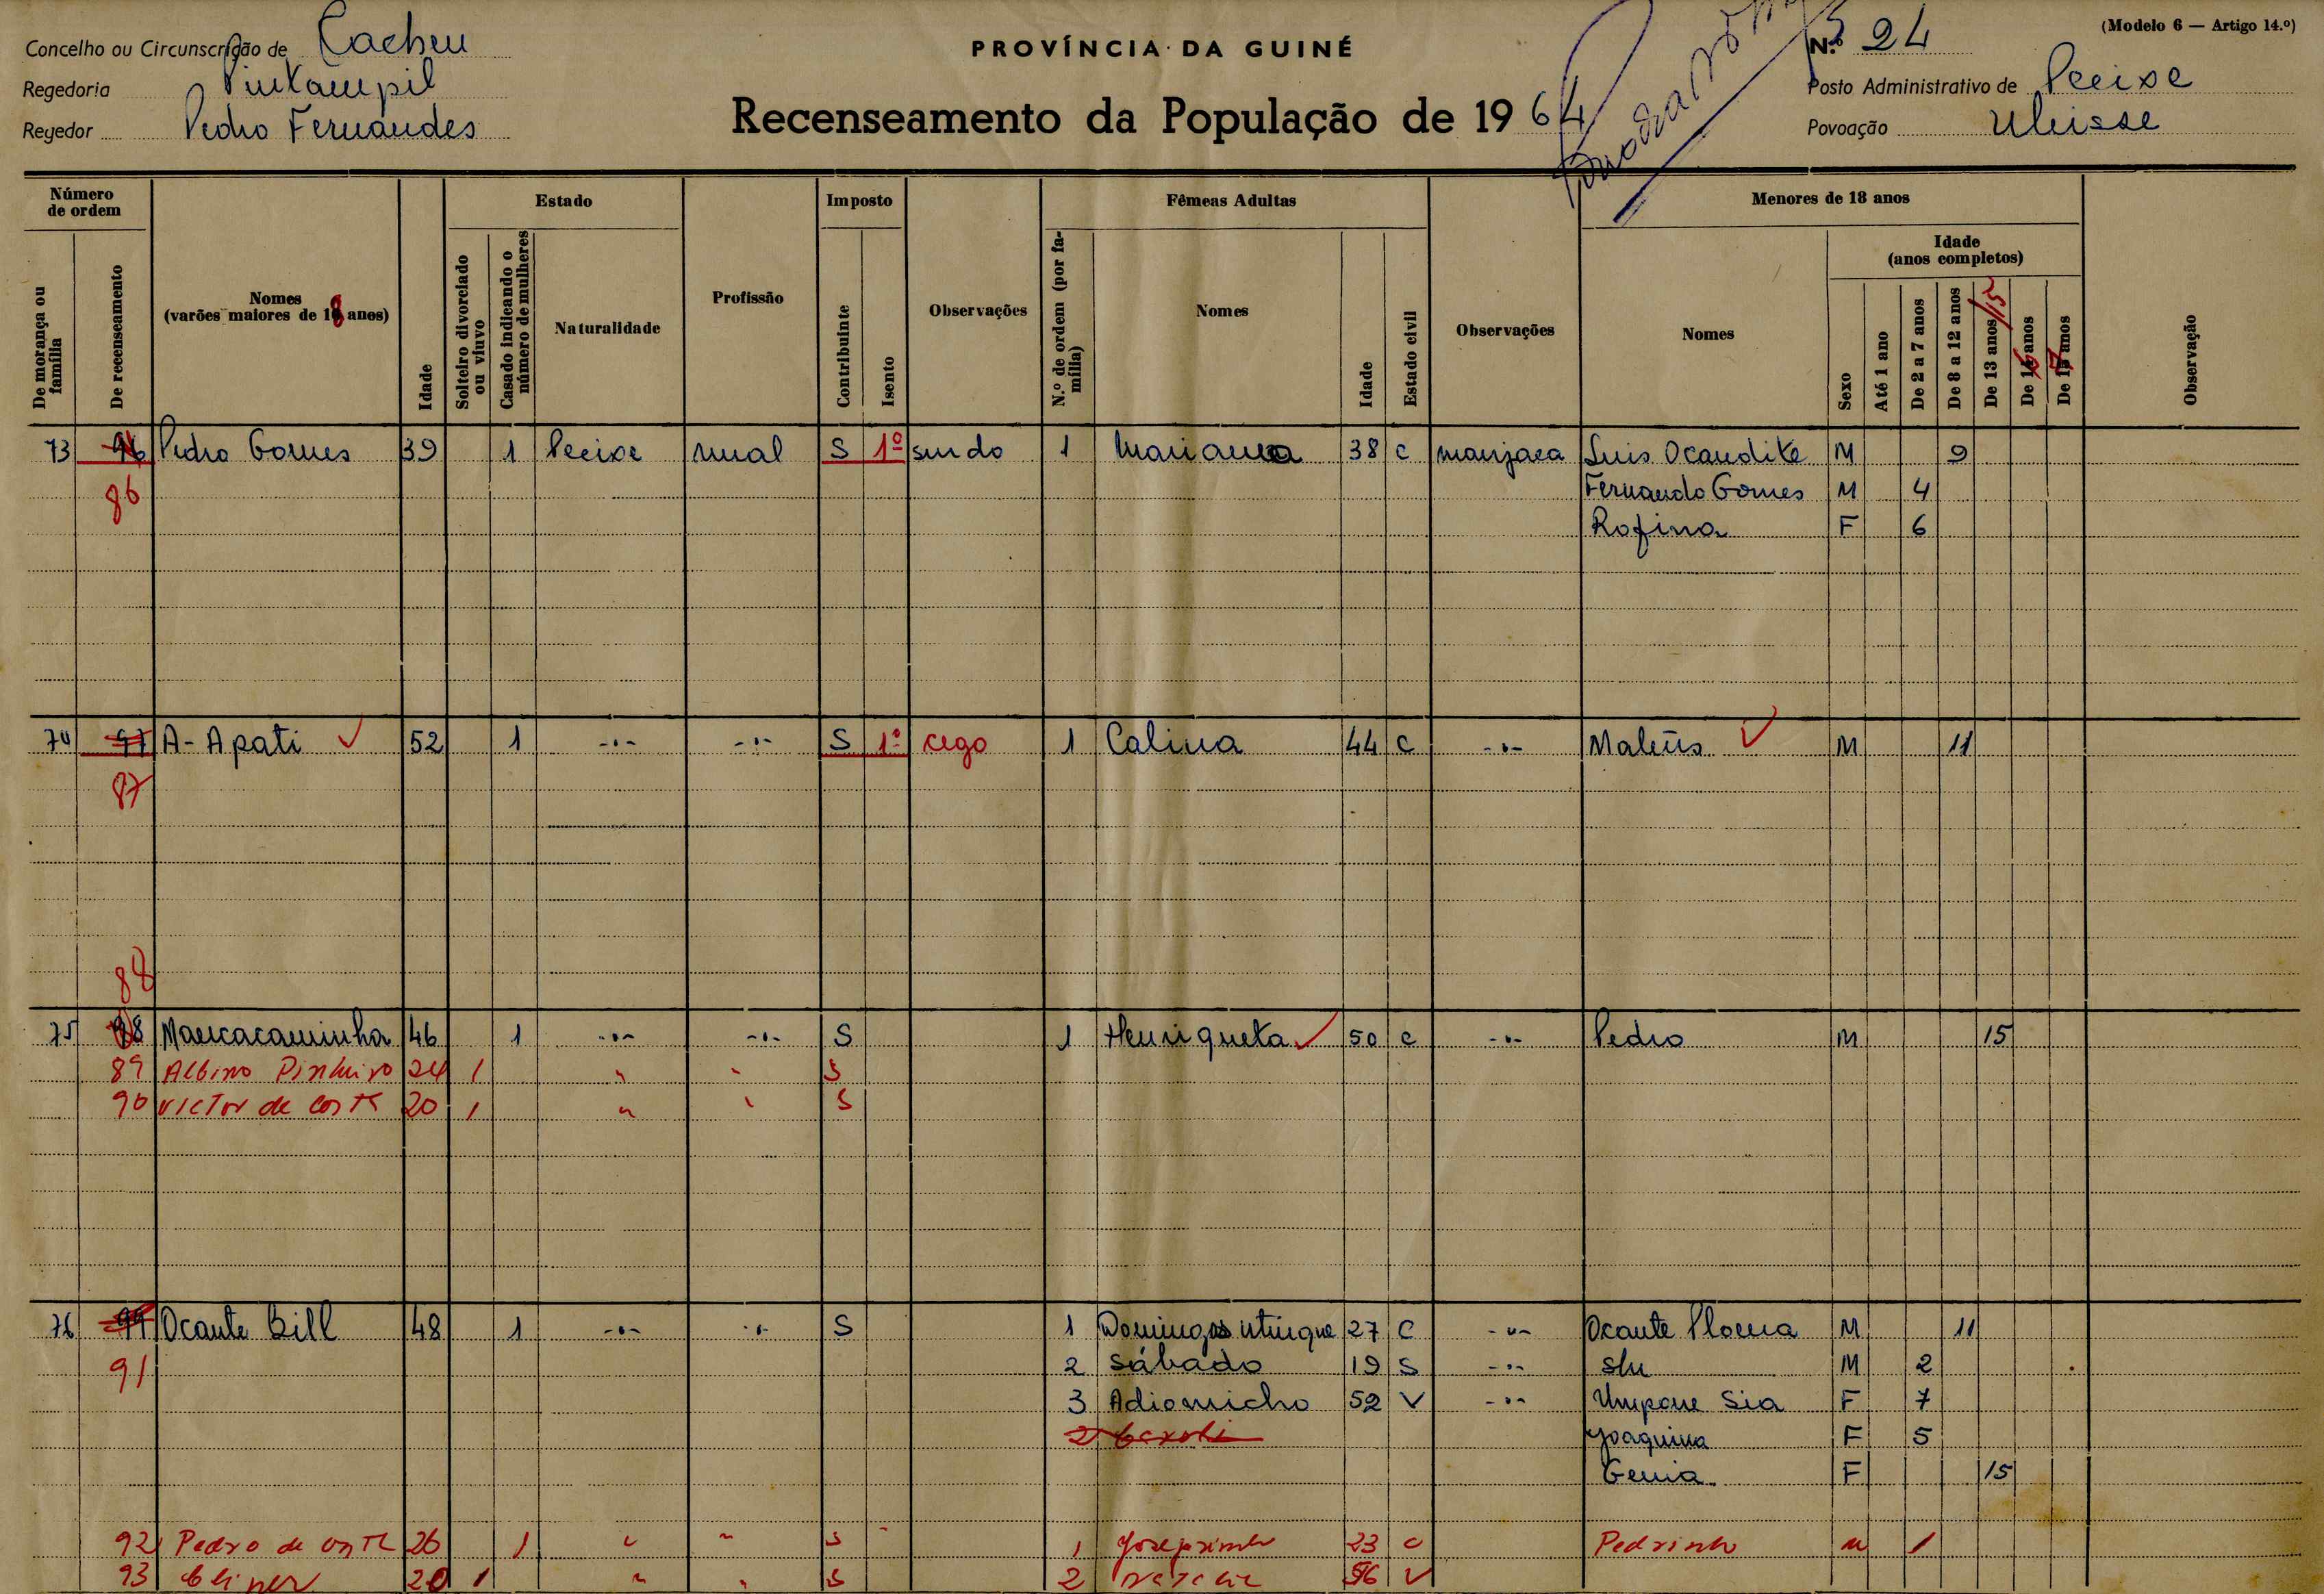 Concelho ou Circunscrição de Cacheu
PROVÍNCIA DA GUINÉ
N.º 24
(Modelo 6 — Artigo 14.º)
Regedoria Pintampil
Posto Administrativo de Pecixe
Regedor Pedro Fernandes
Recenseamento da População de 1964
Povoação
Número de ordem
Estado
Imposto
Fêmeas Adultas
Menores de 18 anos
De morança ou família
De recenseamento
Nomes (varões maiores de 18 anos)
Idade
Solteiro divorciado ou viuvo
Casado indicando o número de mulheres
Naturalidade
Profissão
Contribuinte
Isento
Observações
N.º de ordem (por família)
Nomes
Idade
Estado civil
Observações
Nomes
Sexo
Idade (anos completos)
Até 1 ano
De 2 a 7 anos
De 8 a 12 anos
De 13 anos /15
De 16 anos
De 17 anos
Observação
73 96 Pedro Gomes 39 1 Pecixe rural S 1º surdo 1 Mariana 38 C manjaca Luis Ocandite M 9
86 Fernando Gomes M 4
Rofina F 6
74 97 A-Apati 52 1 -"- -"- S 1º cego 1 Calina 44 C -"- M 11
87
88
75 98 Mancacaminha 46 1 -"- -"- S 1 Henriqueta 50 C -"- Pedro M 15
89 Albino Pinheiro 24 1 " " S
90 Victor de Costa 20 1 " " S
76 99 Ocante Bill 48 1 -"- -"- S 1 Domingas 27 C -"- Ocante M 11
91 2 Sábado 19 S -"- M 2
3 Adiomicho 52 V -"- Sia F 7
2 Joaquina F 5
Genia F 15
92 Pedro de Costa 26 1 " " S 1 23 C Pedrinho M 1
93 20 1 " " S 2 56 V